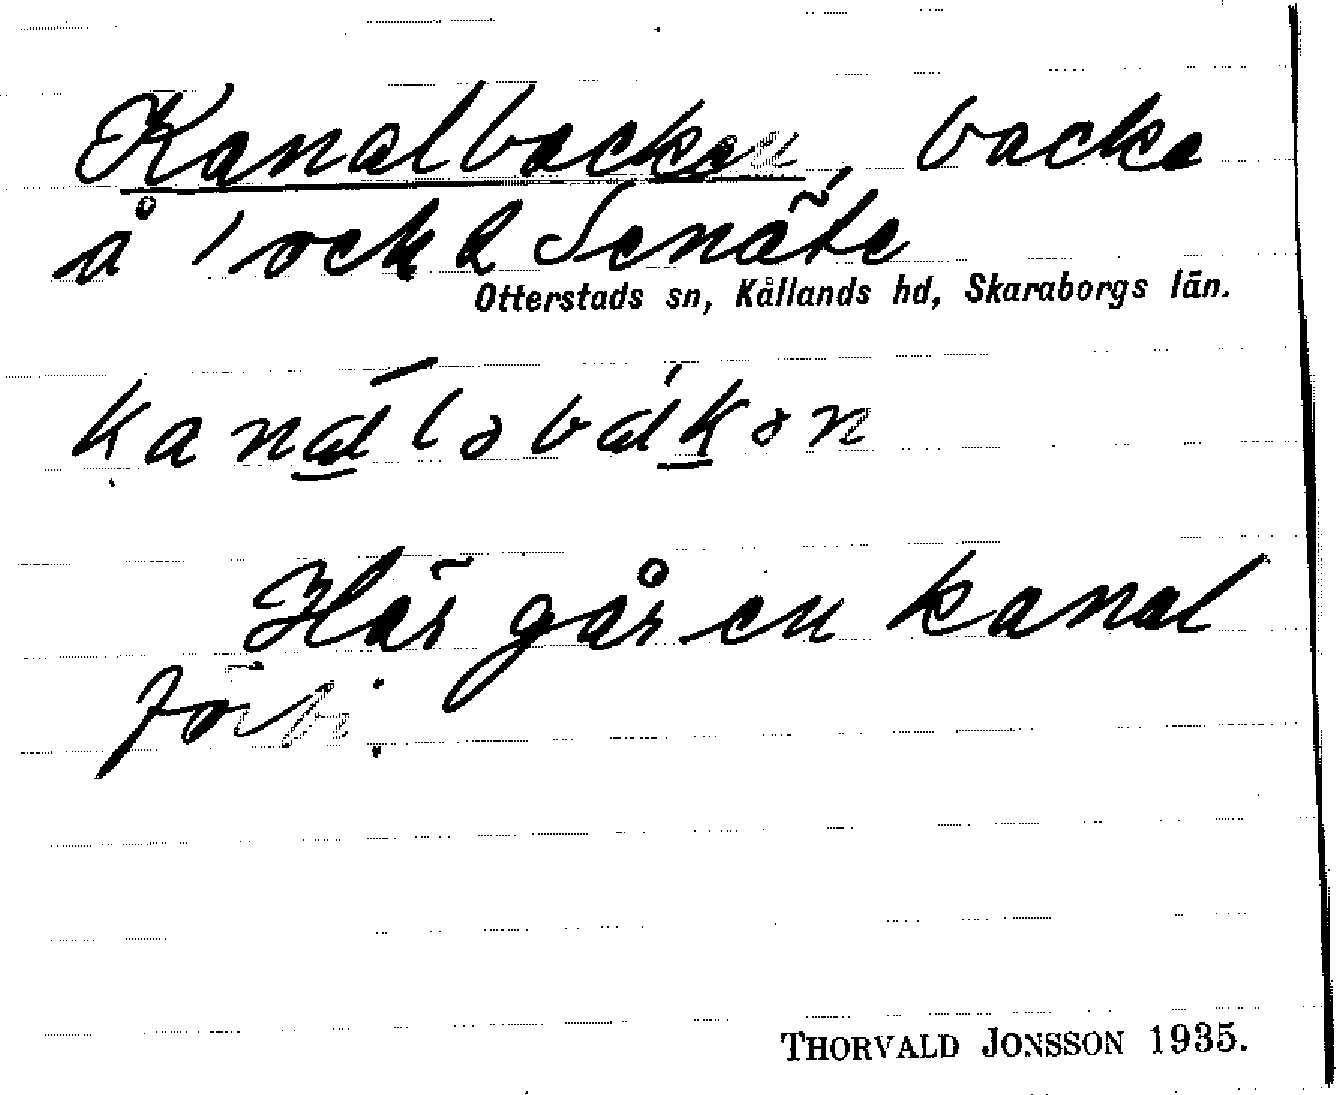 Kanalbacken, backe
å 1 och 2 Senäte
Otterstads sn, Kållands hd, Skaraborgs län.
kanaləbakən
Här går en kanal
förbi.
THORVALD JONSSON 1935.